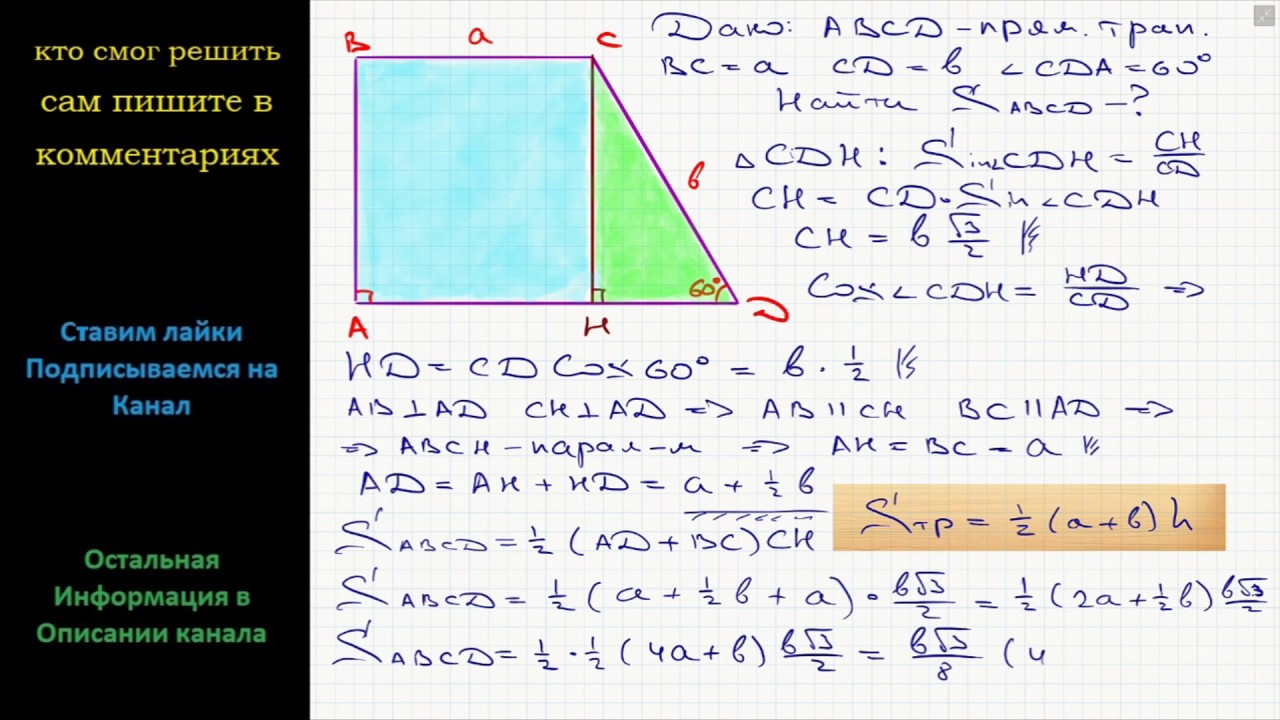 кто смог решить
сам пишите в
комментариях
Ставим лайки
Подписываемся на
Канал
Остальная
Информация в
Описании канала
B a C
в
60°
A H D
Дано: ABCD – прям. трап.
BC = a CD = в ∠CDA = 60°
Найти S ABCD – ?
△CDH: Sin∠CDH = CH/CD
CH = CD · Sin∠CDH
CH = в √3/2
Cos∠CDH = HD/CD =>
HD = CD Cos 60° = в · 1/2
AB ⊥ AD CH ⊥ AD => AB || CH BC || AD =>
=> ABCH – парал–м => AH = BC = a
AD = AH + HD = a + 1/2 в
S ABCD = 1/2 (AD + BC) CH
Sтр = 1/2 (a + в) h
S ABCD = 1/2 (a + 1/2 в + a) · в√3/2 = 1/2 (2a + 1/2 в) в√3/2
S ABCD = 1/2 · 1/2 (4a + в) в√3/2 = в√3/8 (4